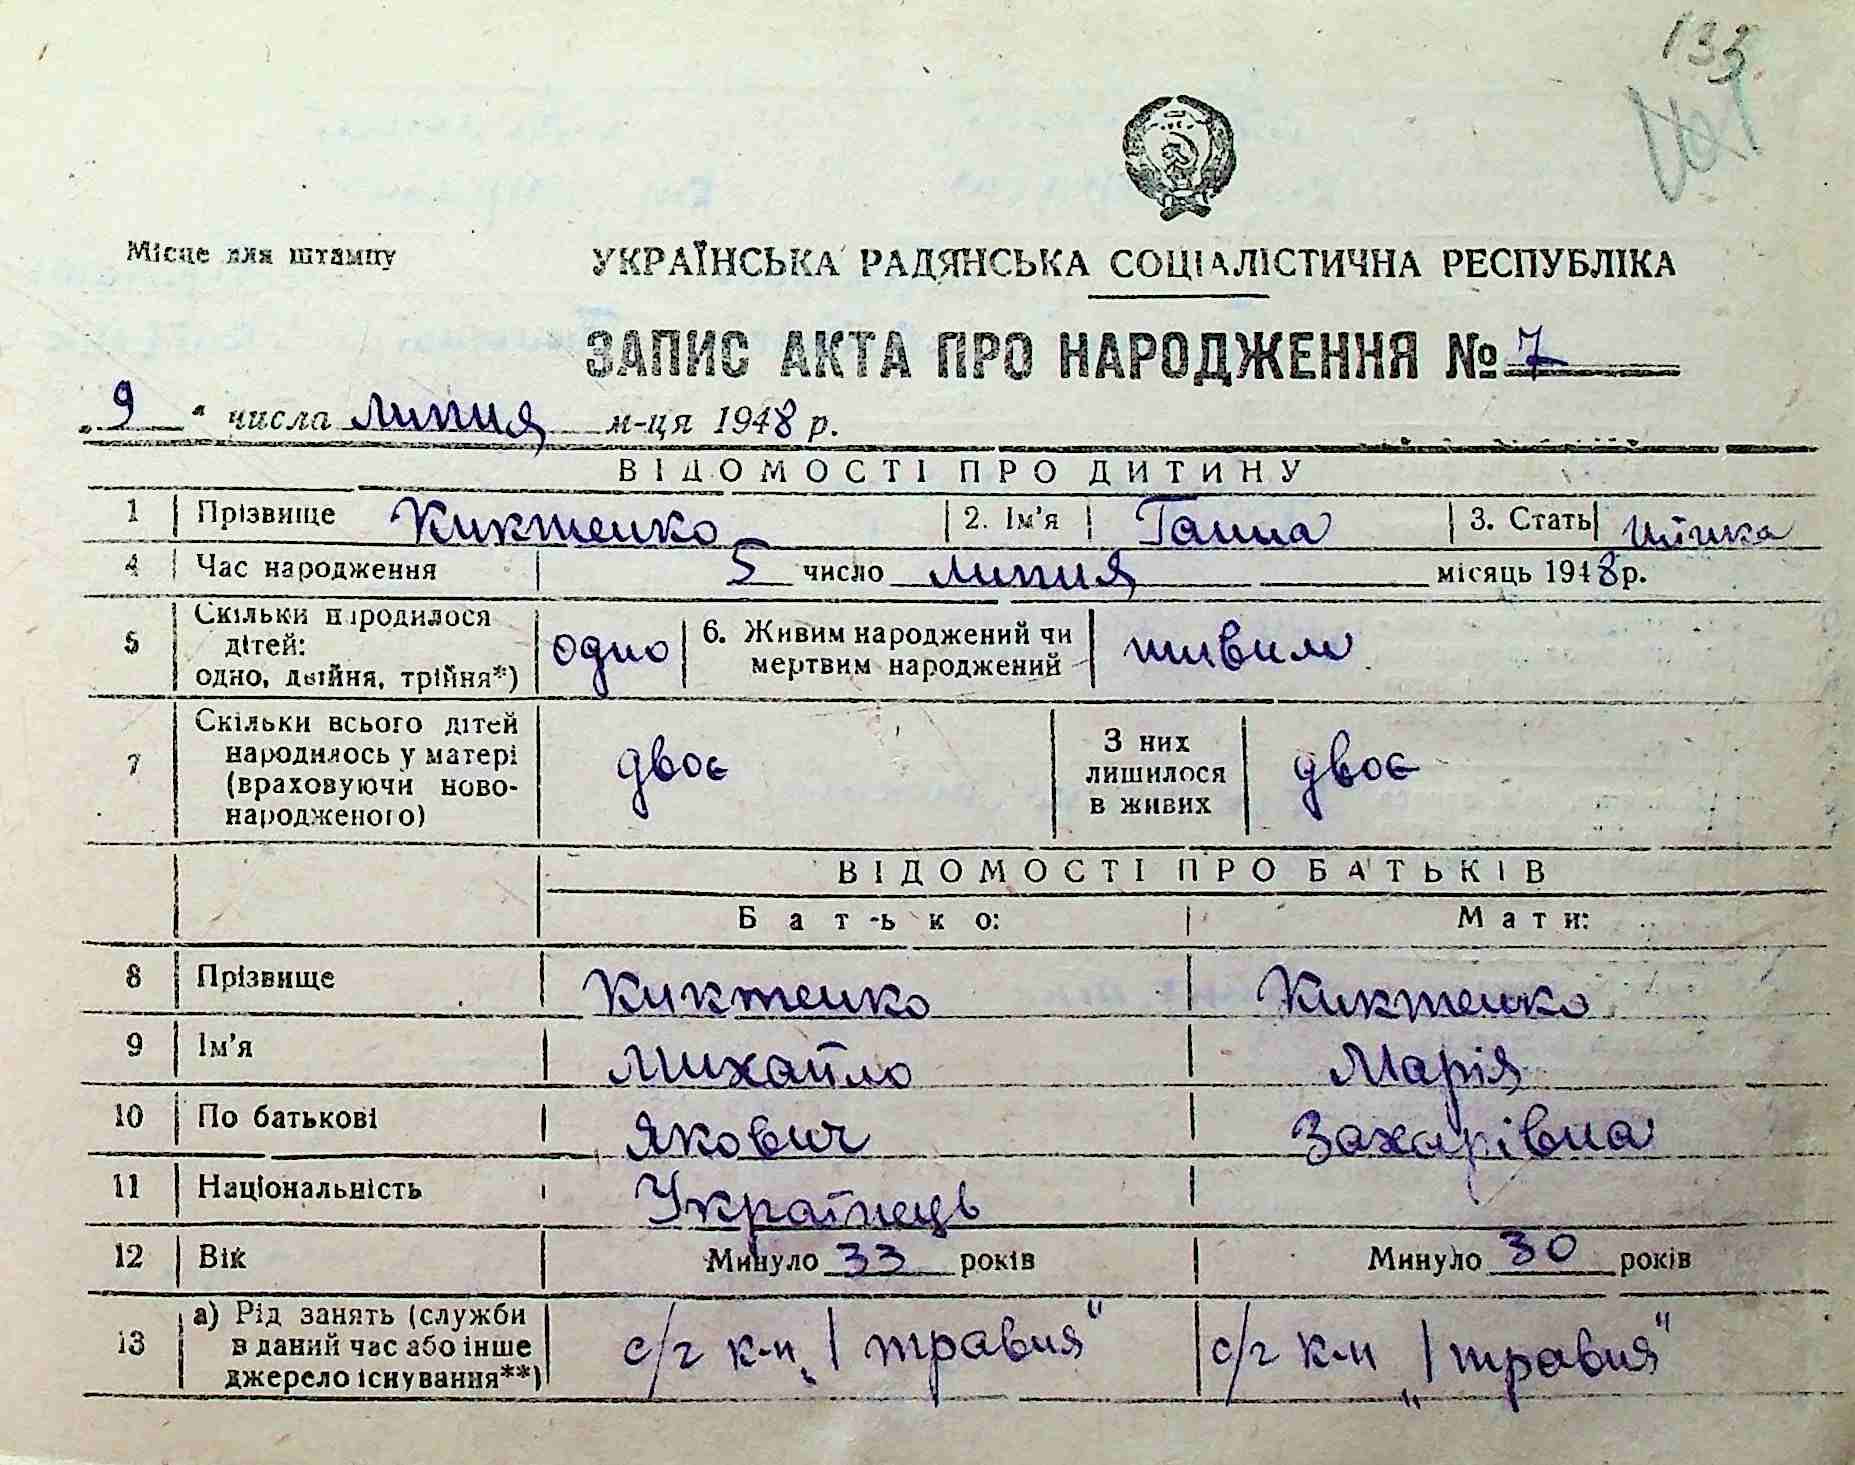 133
Місце для штампу
УКРАЇНСЬКА РАДЯНСЬКА СОЦІАЛІСТИЧНА РЕСПУБЛІКА
ЗАПИС АКТА ПРО НАРОДЖЕННЯ № 7
„9" числа липня м-ця 1948 р.
ВІДОМОСТІ ПРО ДИТИНУ
1 Прізвище Киктенко 2. Ім'я Ганна 3. Стать жінка
4 Час народження 5 число липня місяць 1948 р.
5 Скільки народилося дітей: одно, двійня, трійня*) одно 6. Живим народжений чи мертвим народжений живим
7 Скільки всього дітей народилось у матері (враховуючи новонародженого) двоє З них лишилося в живих двоє
ВІДОМОСТІ ПРО БАТЬКІВ
Батько: Мати:
8 Прізвище Киктенко Киктенко
9 Ім'я Михайло Марія
10 По батькові Якович Захарівна
11 Національність Українець
12 Вік Минуло 33 років Минуло 30 років
13 а) Рід занять (служби в даний час або інше джерело існування**) с/г к-п „1 травня" с/г к-п „1 травня"